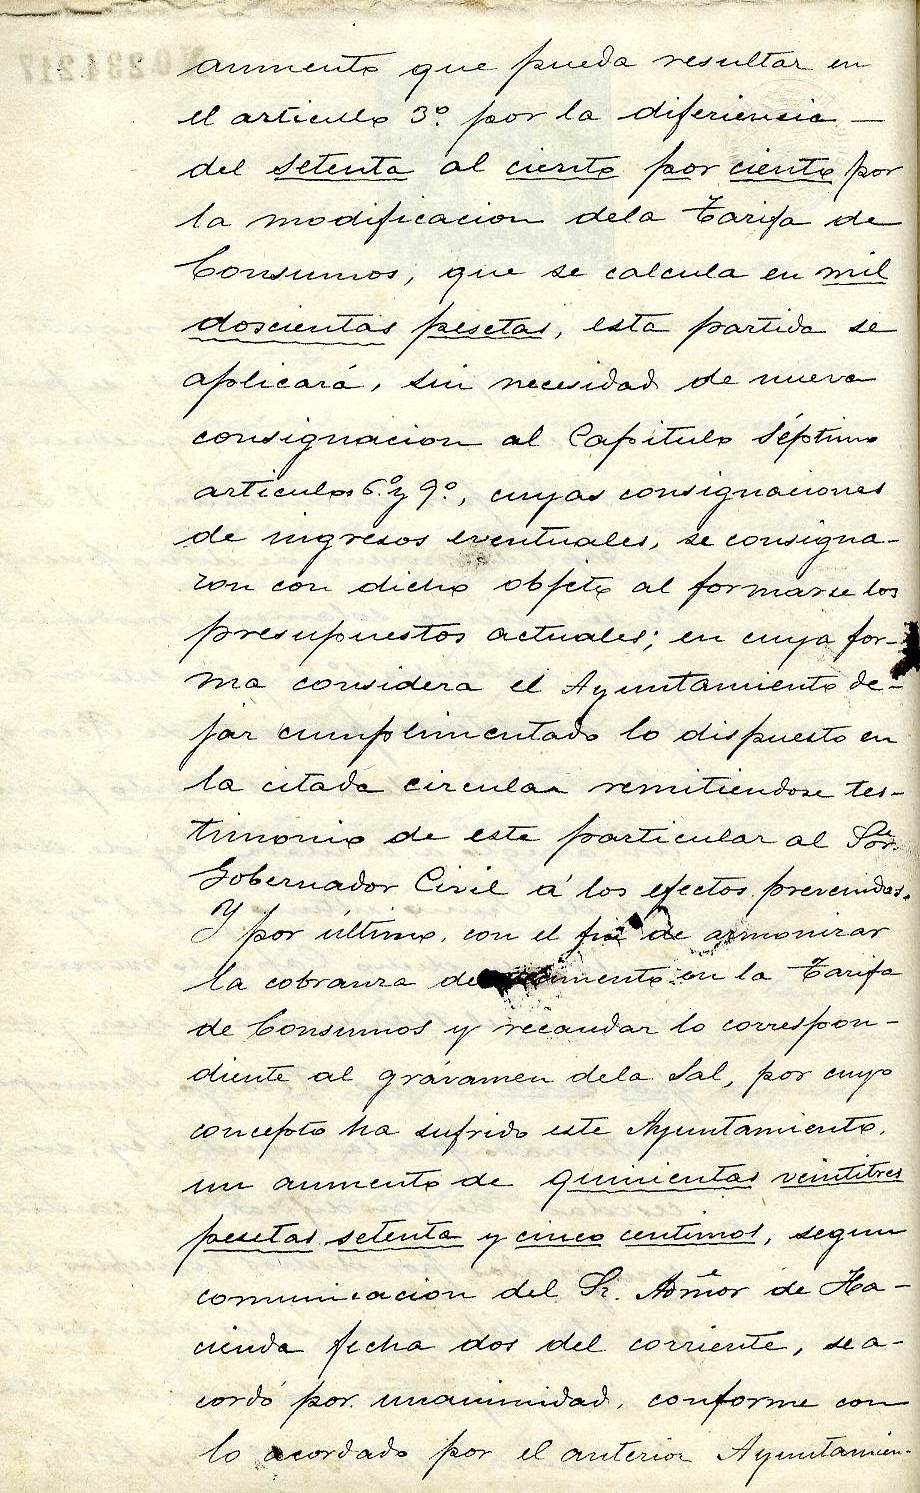 aumento que pueda resultar en
el articulo 3º. por la diferiencia —
del setenta al ciento por ciento por
la modificacion dela Tarifa de
Consumos, que se calcula en mil
doscientas pesetas, esta partida se
aplicará, sin necesidad de nueva
consignacion al Capitulo Séptimo
articulos 6.º y 9º., cuyas consignaciones
de ingresos eventuales, se consigna-
ron con dicho objeto al formarse los
presupuestos actuales; en cuya for-
ma considera el Ayuntamiento de-
jar cumplimentado lo dispuesto en
la citada circular remitiendose tes-
timonio de este particular al Sor.
Gobernador Civil á los efectos prevenidos.
Y por último, con el fin de armonizar
la cobranza de en la Tarifa
de Consumos y recaudar lo correspon-
diente al grávamen dela Sal, por cuyo
concepto ha sufrido este Ayuntamiento,
un aumento de quinientas veintitres
pesetas setenta y cinco centimos, segun
comunicacion del Sr. Admor de Ha-
cienda fecha dos del corriente, se a-
cordó por unanimidad, conforme con
lo acordado por el anterior Ayuntamien-